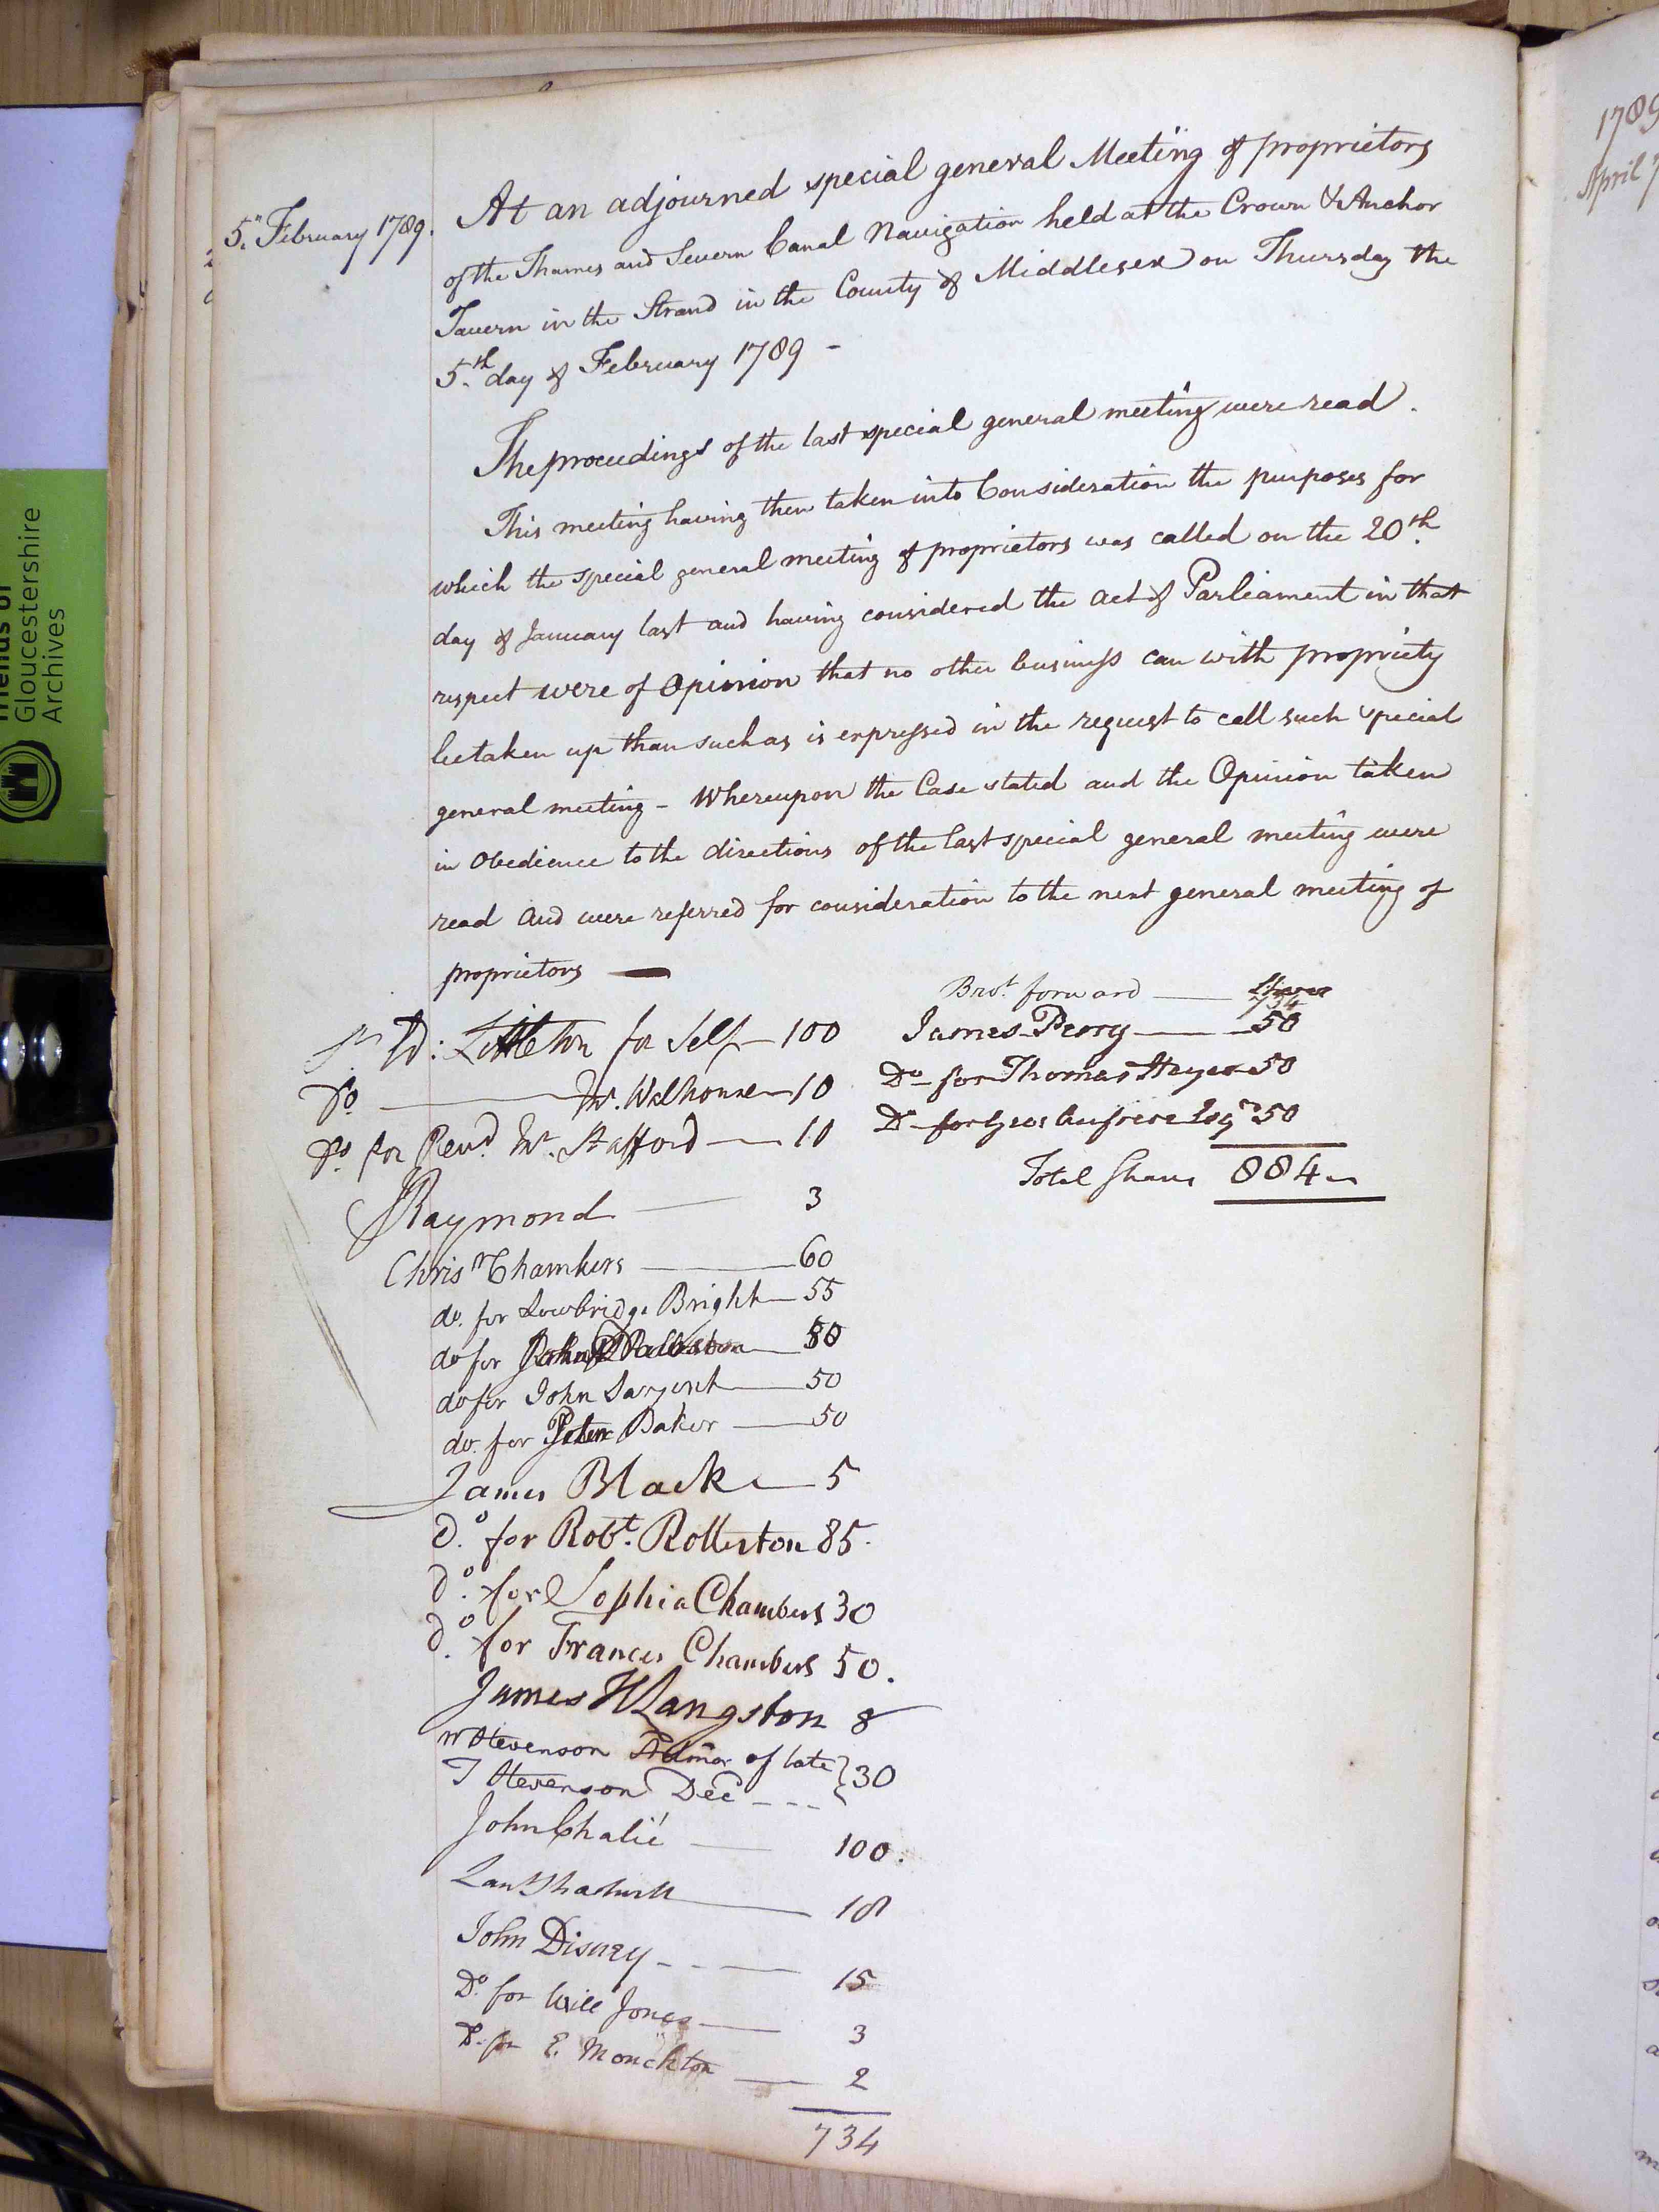 5.th February 1789.
At an adjourned special general Meeting of proprietors
of the Thames and Severn Canal Navigation held at the Crown & Anchor
Tavern in the Strand in the County of Middlesex on Thursday the
5.th day of February 1789 -
The proceedings of the last special general meeting were read.
This meeting having then taken into Consideration the purposes for
which the special general meeting of proprietors was called on the 20th.
day of January last and having considered the act of Parliament in that
respect were of Opinion that no other business can with propriety
be taken up than such as is expressed in the request to call such special
general meeting - Whereupon the Case stated and the Opinion taken
in Obedience to the directions of the last special general meeting were
read and were referred for consideration to the next general meeting of
proprietors —
Sr Ed: Littleton for Self - 100
Do — Mr. Walhouse - 10
Do for Revd. Mr. Stafford — 10
JRaymond — 3
Chrisr Chambers — 60
do. for Lowbridge Bright — 55
do for John — 50
do for John Sargent — 50
do. for Peter Baker — 50
James Black — 5
Do. for Robt. Rolleston 85.
Do. for Sophia Chambers 30
Do. for Frances Chambers 50.
James H Langston 8
W Stevenson Admor of late } 30
T Stevenson Decd - - -
John Chalié — 100.
Lant Shadwell — 18
John Disney - - — 15
Do. for Will Jones — 3
Do. for E. Monckton — 2
734
Brot. forward — Shares
734
James Perry — 50
Do - for Thomas Hayes 50
Do - for Geo Aufrere Esqr 50
Total Shares 884
1789
April 7
Friends of
Gloucestershire
Archives